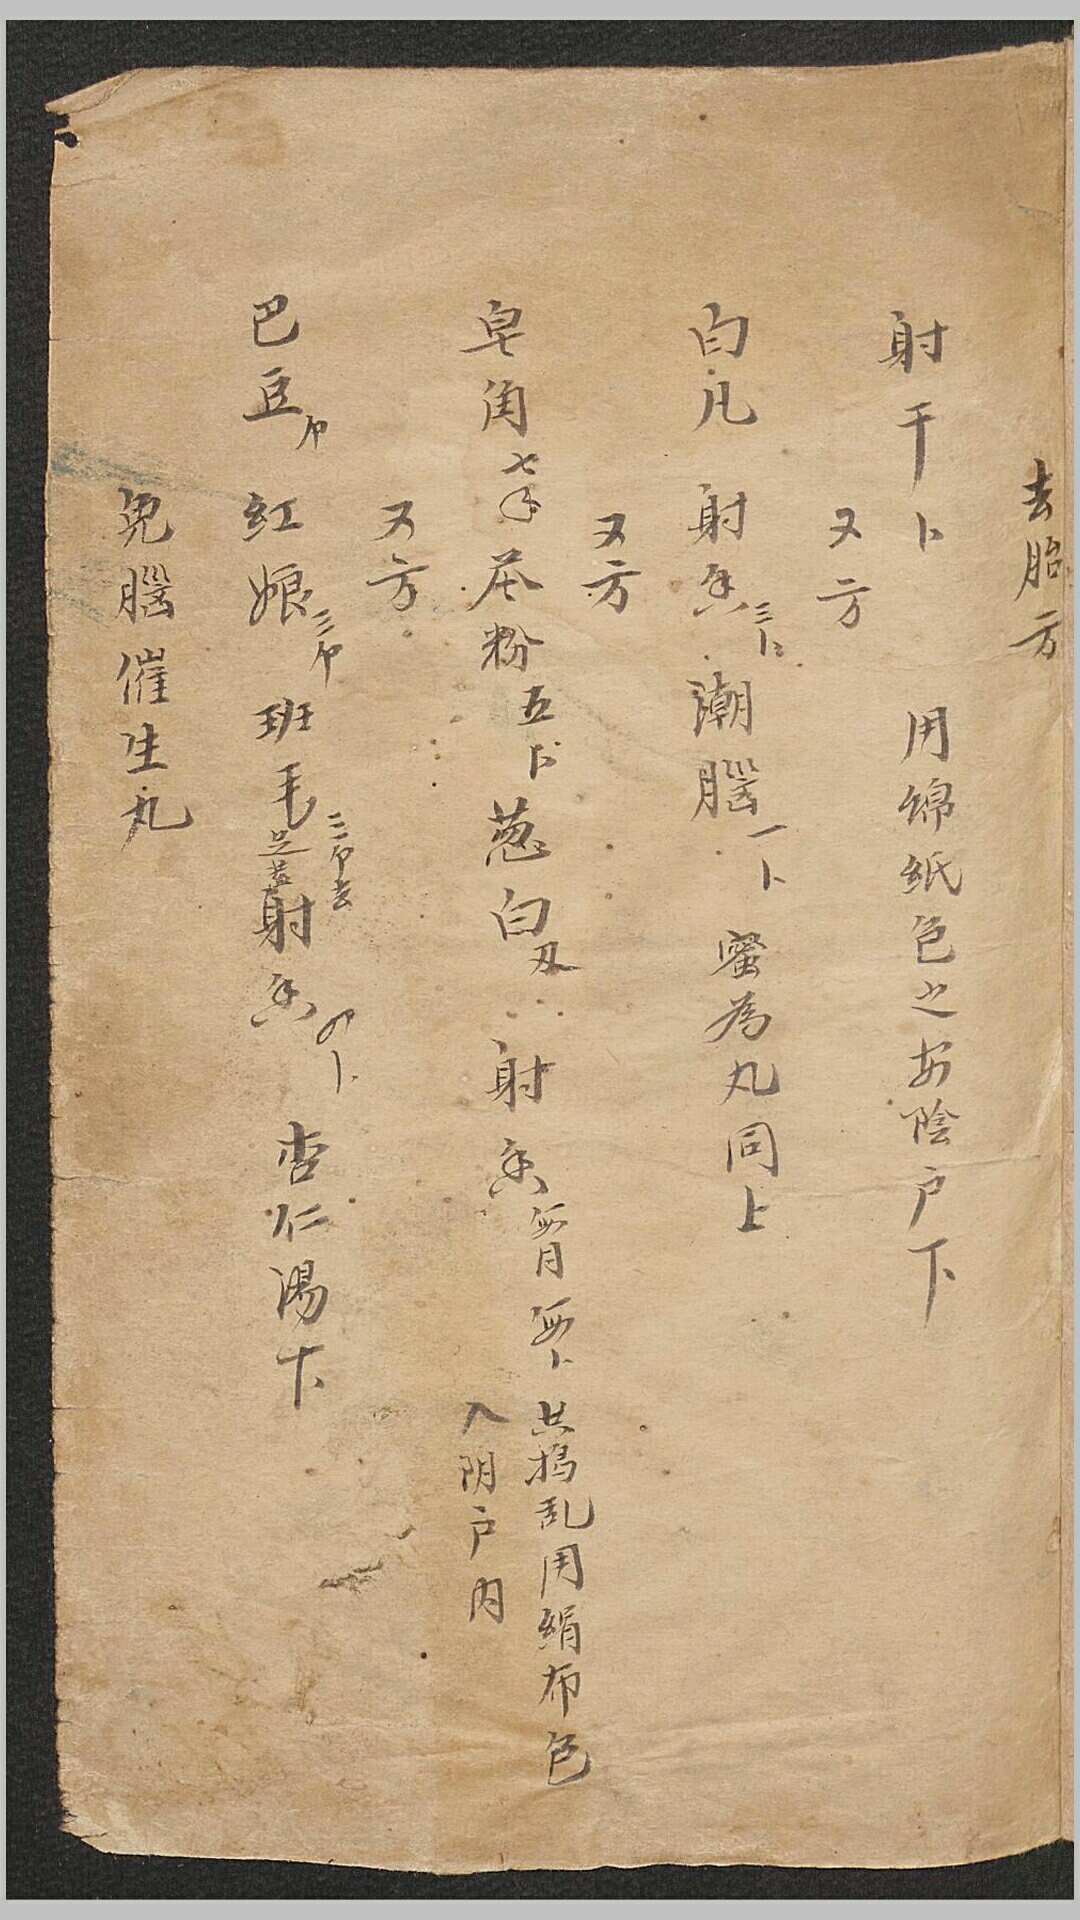 去胎方
射干卜　用綿紙包之安陰户下
又方
白凡　射香三卜　潮腦一卜　蜜為丸同上
又方
皂角七　粉五卜　葱白　射香　共搗乱用絹布包
入阴户内
又方
巴豆　紅娘三　班毛三　去足　射香　卜　杏仁湯下
兔腦催生丸